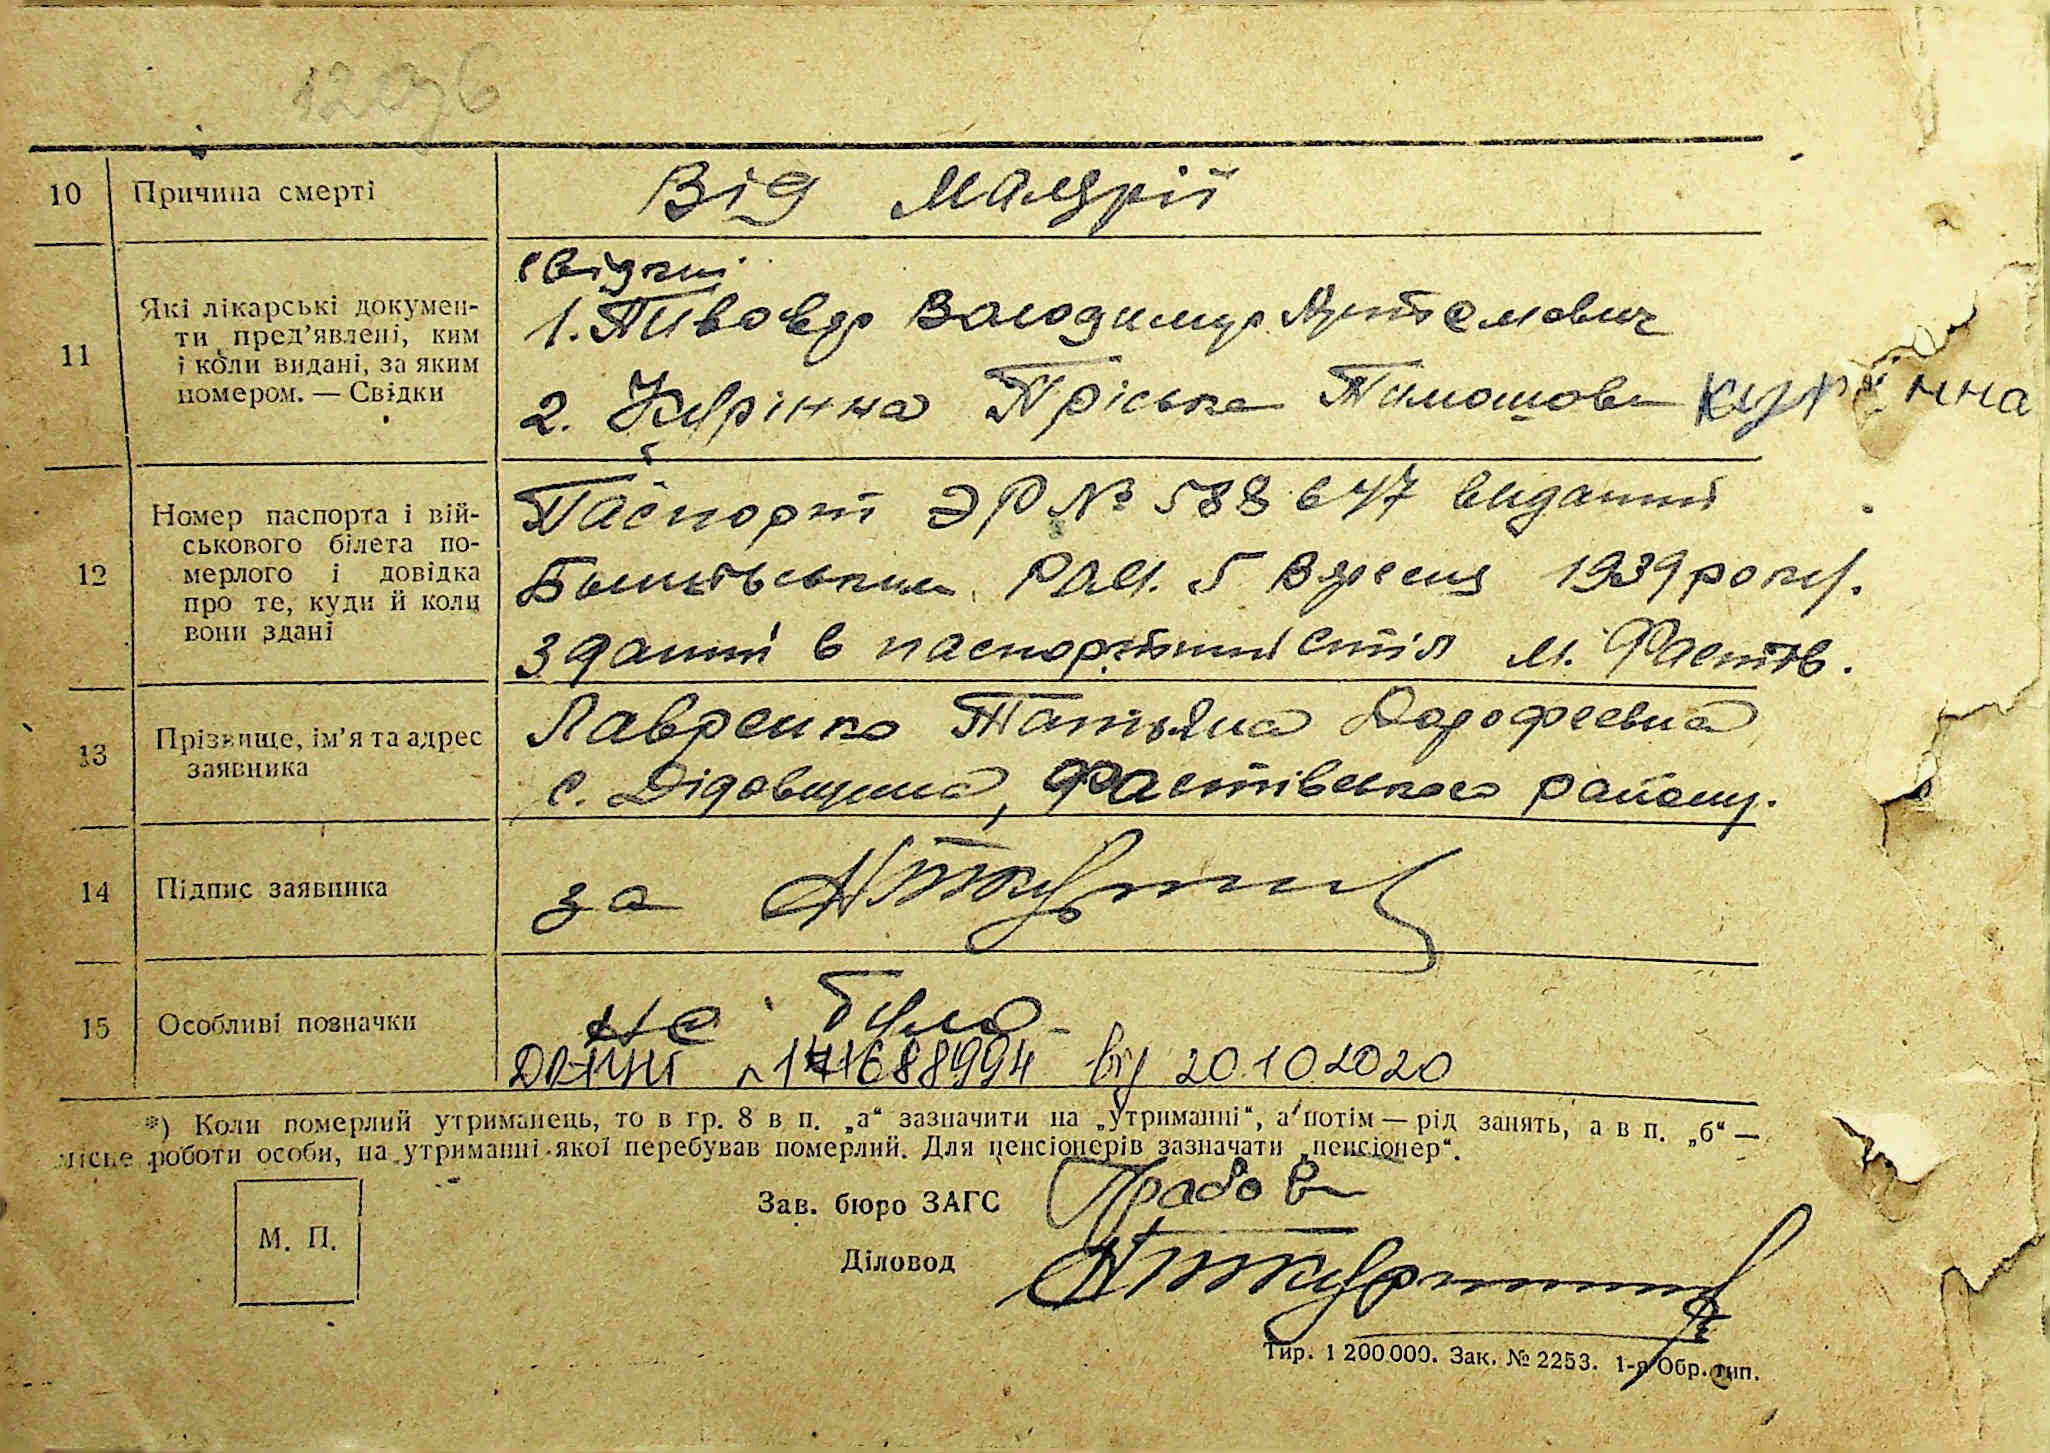 1206
10 Причина смерті Від малярії
11 Які лікарські докумен-
ти пред’явлені, ким
і коли видані, за яким
номером. — Свідки
свідки
1. Пивовар Володимир Артемович
2. Курінна Пріська Тимошовна Курінна
12 Номер паспорта і вій-
ськового білета по-
мерлого і довідка
про те, куди й коли
вони здані
Паспорт ЭР № 588647 виданий
РАМ. 5 Вересня 1939 року.
зданий в паспортний стіл м. Фастів.
13 Прізвище, ім’я та адрес
заявника
Лавренко Татьяна Дорофеевна
с. Дідовщина, Фастівського району.
14 Підпис заявника за
15 Особливі позначки не було
від 20.10.2020
*) Коли померлий утриманець, то в гр. 8 в п. „а“ зазначити на „утриманні“, а потім — рід занять, а в п. „б“ —
місце роботи особи, на утриманні якої перебував померлий. Для пенсіонерів зазначати „пенсіонер“.
М. П.
Зав. бюро ЗАГС
Діловод
Тир. 1 200 000. Зак. № 2253. 1-я Обр. тип.